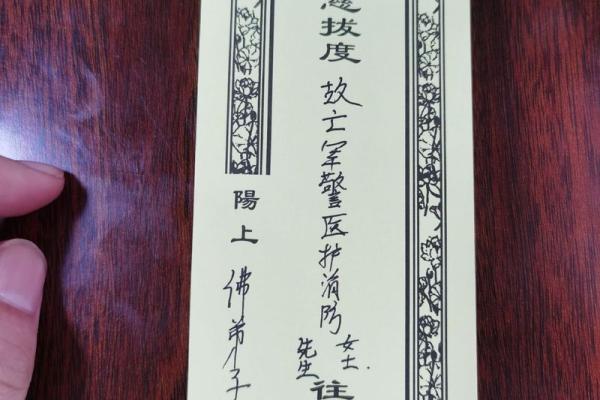 拔度 故亡军警医护消防
女士.
先生
往
陽上 佛弟子